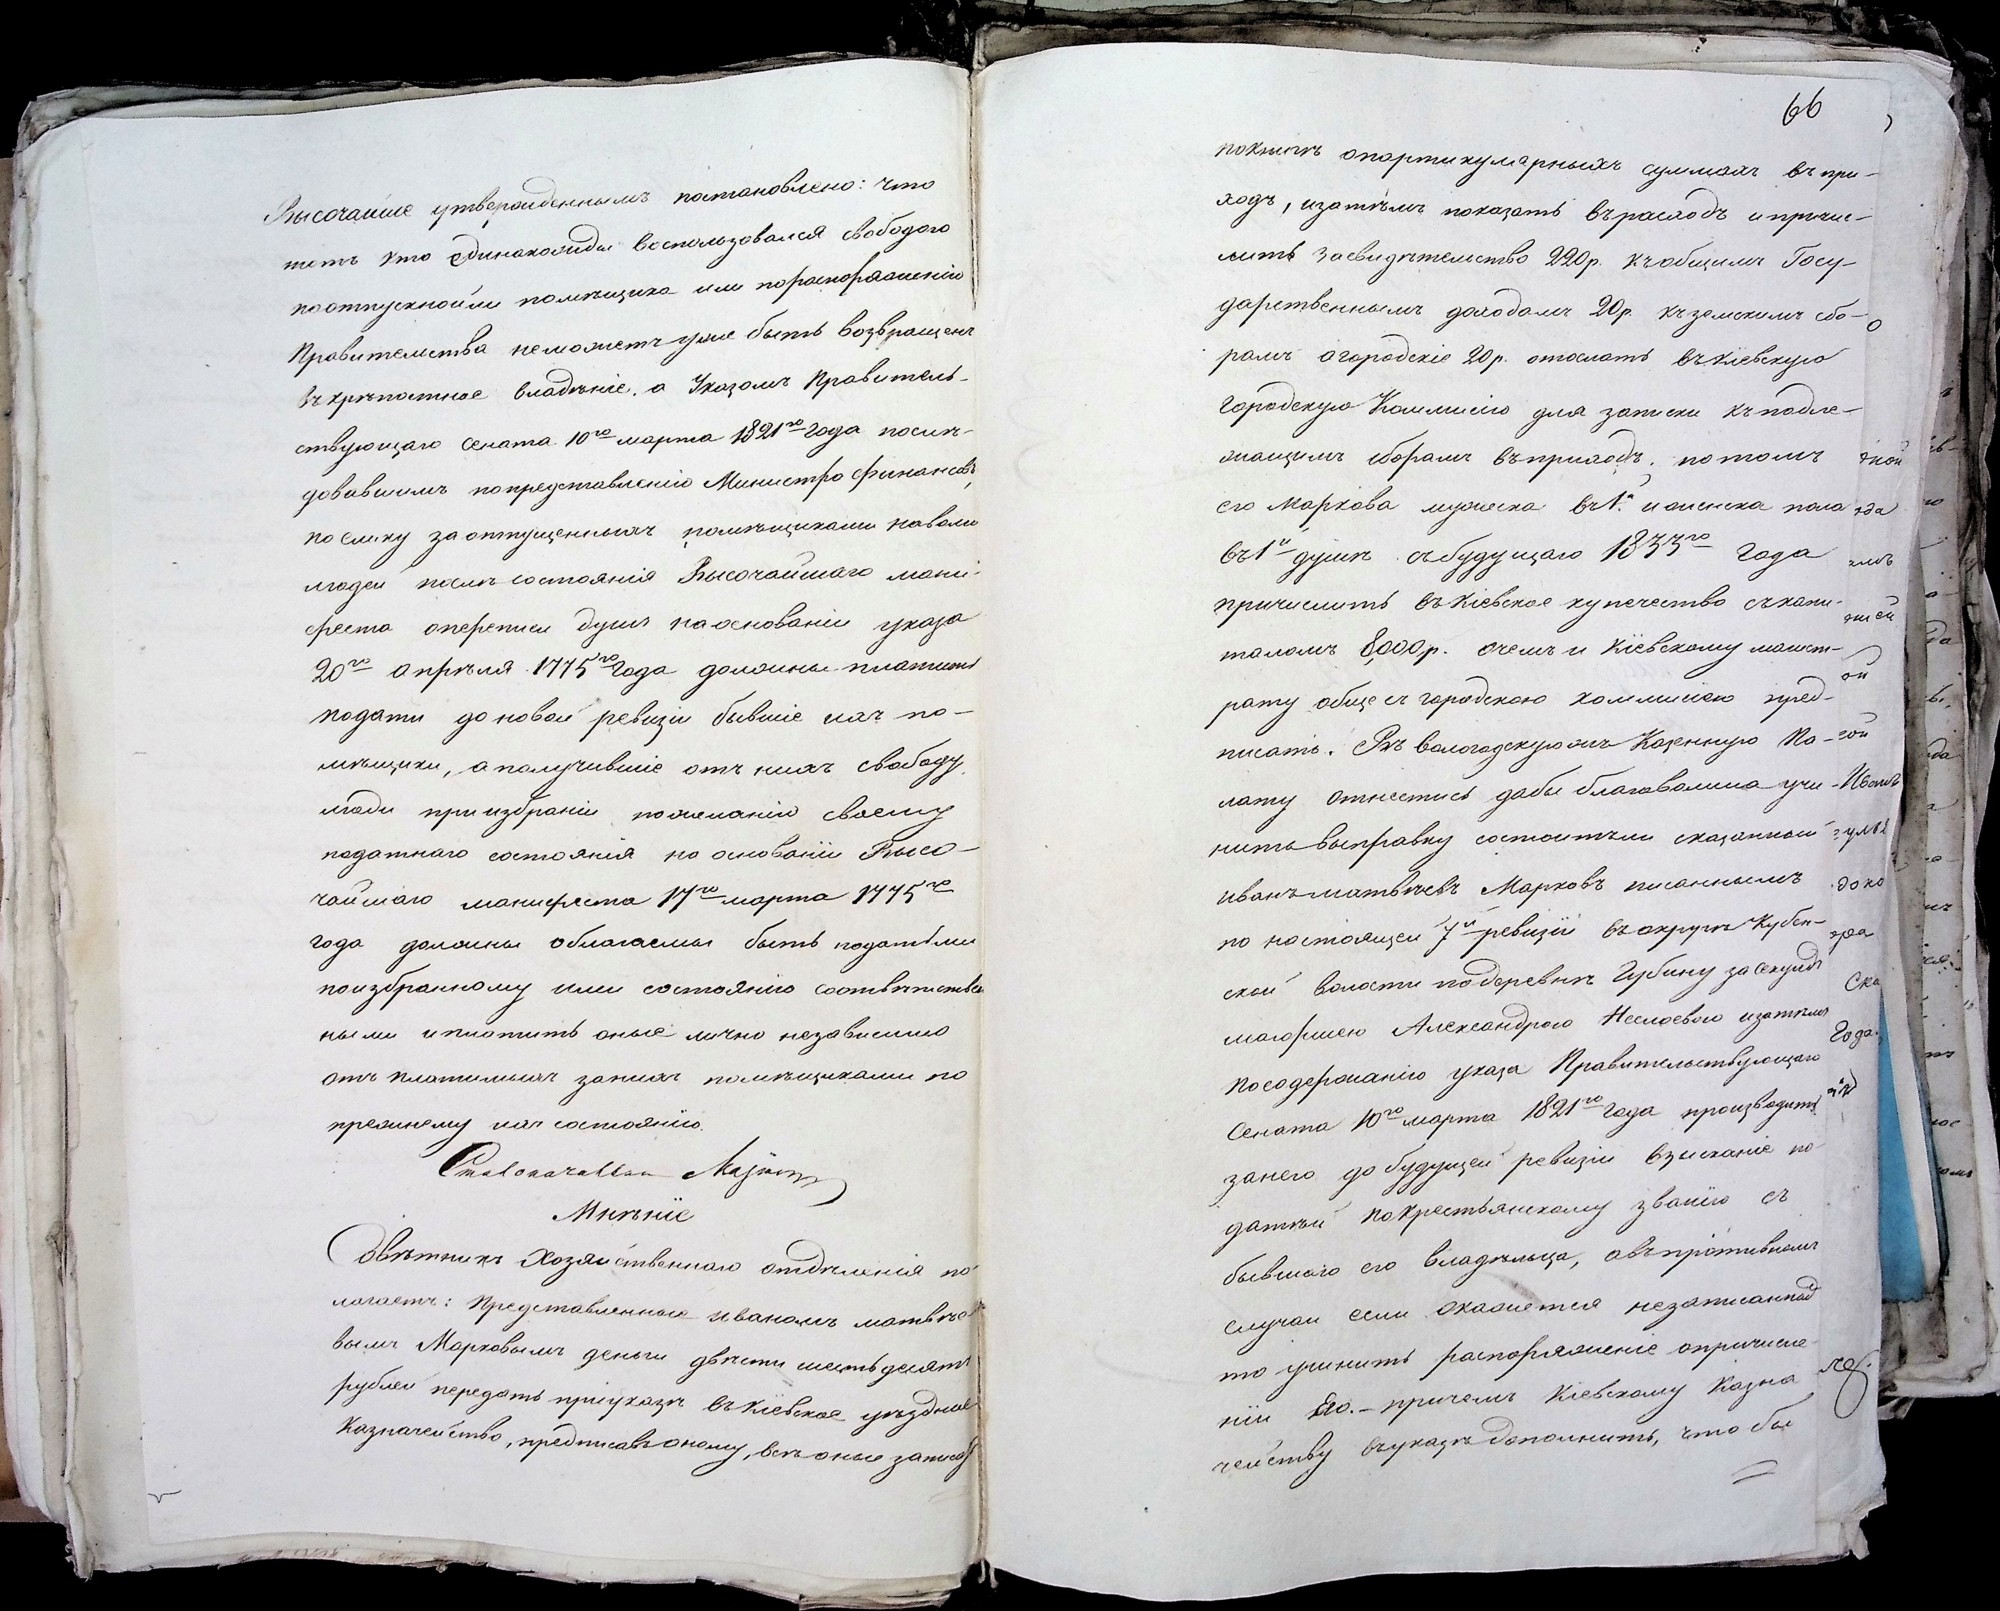 Высочайше утвержденнымъ постановлено: что
тотъ кто единожды воспользовался свободою
поотпускнойли помѣщика или пораспоряженію
Правительства неможетъ уже быть возвращенъ
въ крѣпостное владѣніе. а Указомъ Правитель-
ствующаго Сената 10го марта 1821го года послѣ-
довавшимъ попредставленію Министра финансовъ,
поелику заотпущенныхъ помѣщиками наволю
людей послѣ состоянія Высочайшаго мани-
феста оперепеси душъ наоснованіи указа
20го апрѣля 1775го года должны платить
подати до новой ревизіи бывшіе ихъ по-
мѣщики, а получившіе отъ нихъ свободу
люди при избраніи пожеланію своему
податнаго состоянія на основаніи Высо-
чайшаго манифеста 17го марта 1775го
года должны облагаемы быть податьми
поизбранному ими состоянію соотвѣтствен
ными и платить оные лично независимо
отъ платимыхъ занихъ помѣщиками по
прежнему ихъ состоянію.
Мнѣніе
Совѣтникъ Хозяйственнаго отдѣленія по
лагаетъ: Представленные иваномъ матвѣе
вымъ Марковымъ деньги двѣсти шестьдесятъ
рублей передать приуказѣ въ Кіевское уѣздное
Казначейство, предписавъ оному, всѣ оные записать
66
покнигѣ опартикулярныхъ суммахъ въ при-
ходъ, изатѣмъ показать врасходъ и причис-
лить Засвидѣтельство 220р. къобщимъ Госу-
дарственнымъ доходамъ 20р. къземскимъ сбо-
рамъ огородскіе 20р. отослать въ Кіевскую
городскую Коммисію для записки къ подле-
жащимъ сборамъ въприходъ; потомъ
его Маркова мужеска въ1й иженска пола
въ1й душѣ събудущаго 1833го года
причислить въ Кіевское купечество скапи-
таломъ 8,000р. очемъ и Кіевскому магист-
рату обще съ городскою коммисіею пред-
писать. Въ Вологодскуюжъ Казенную Па-
лату отнестись дабы благоволила учи-
нить выправку состоитъли сказанный
иванъ матвѣевъ Марковъ писаннымъ
по настоящей 7й ревизіи въ округѣ Кубен-
ской волости подеревнѣ Губину засекундъ
маіоршею Александрою изатѣмъ
посодержанію указа Правительствующаго
Сената 10го марта 1821го года производить
занего до будущей ревизіи взысканіе по
датей покрестьянскому званію съ
бывшаго его владѣльца, а въпротивномъ
случаи если окажется незаписанъ
то учинить распоряженіе опричисле-
ніи Его. – причемъ Кіевскому Казна
чейству въуказѣ дополнить, что бы